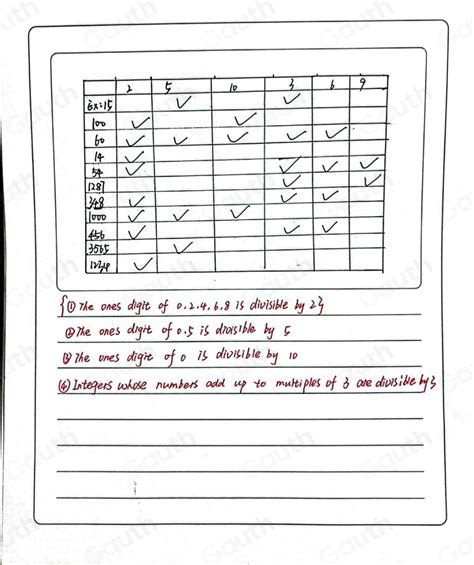 2 5 10 3 6 9
Ex:15 ✓ ✓
100 ✓ ✓
60 ✓ ✓ ✓ ✓ ✓
14 ✓
54 ✓ ✓ ✓ ✓
1287 ✓ ✓
348 ✓ ✓ ✓
1000 ✓ ✓ ✓
456 ✓ ✓ ✓
3565 ✓
1234 ✓
{① The ones digit of 0.2.4.6.8 is divisible by 2}
② The ones digit of 0.5 is divisible by 5
③ The ones digit of 0 is divisible by 10
④ Integers whose numbers add up to multiples of 3 are divisible by 3
Gauth